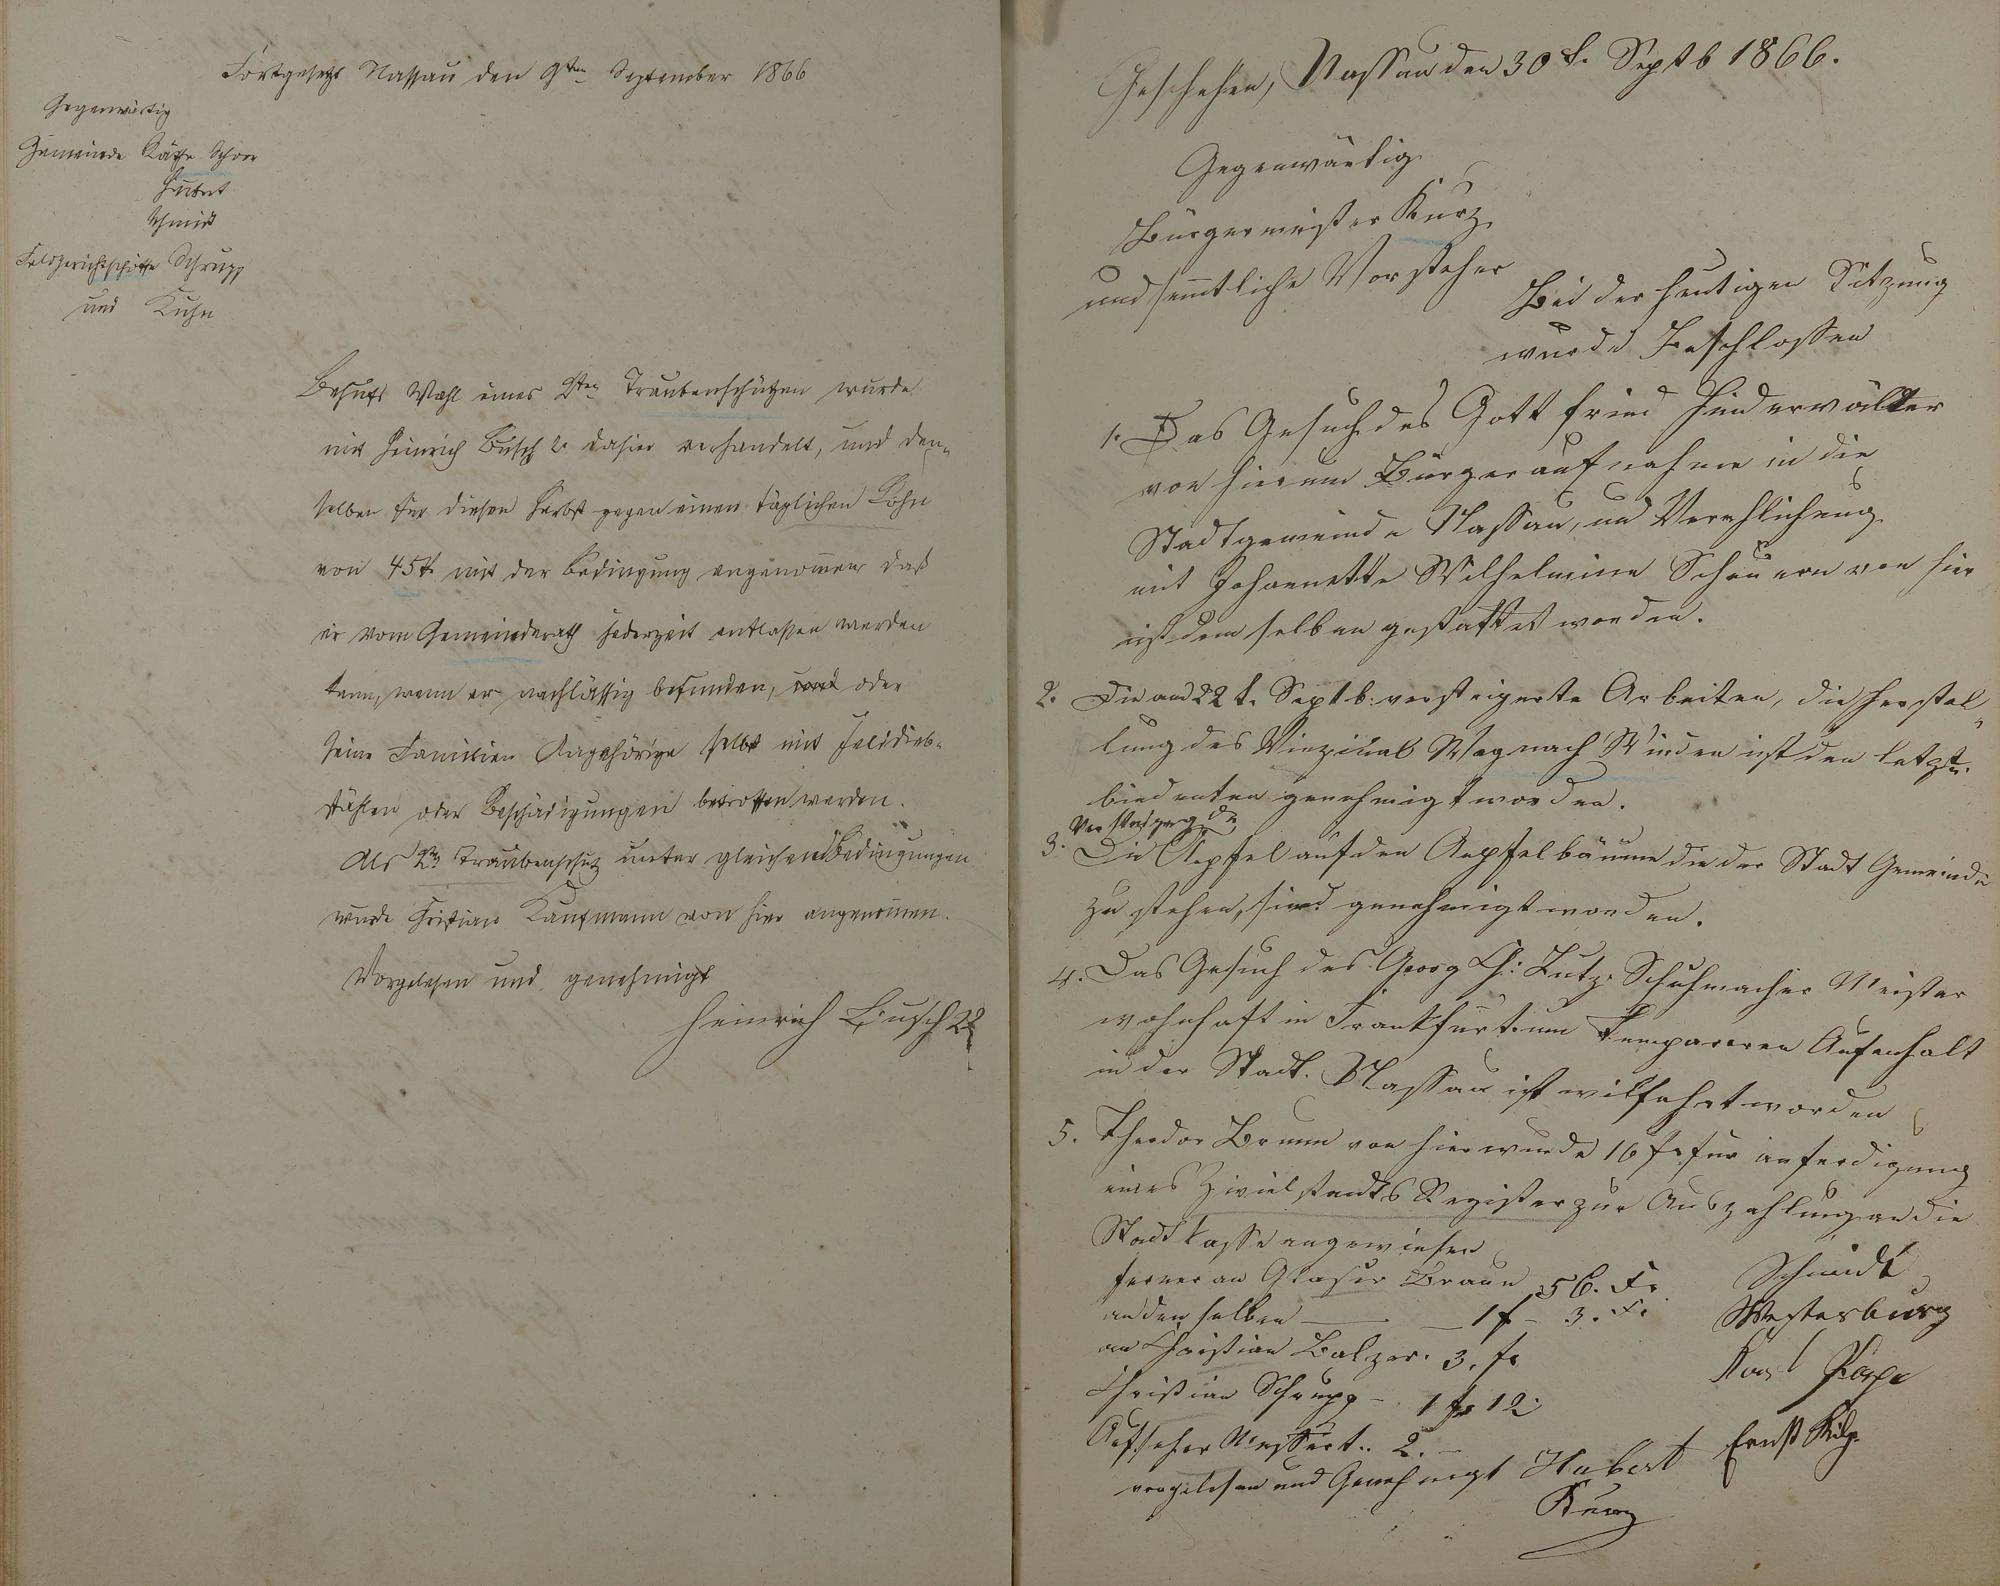 Fortgesetzt Nassau den 9ten September 1866
Gegenwärtig
Gemeinde Räthe Schorr
Hubert
Schmidt
Feldgerichtschöffe Schrupp
und Kuhn
Behufs Wahl eines Traubenschützen wurde
mit Heinrich Busch 2r dahier verhandelt, und den-
selben für diesen Herbst gegen einen täglichen Lohn
von 45 mit der Bedingung angenommen daß
er vom Gemeinderath jederzeit entlassen werden
kann, wenn er nachlässig befunden, oder
seine Familien Angehörige selbst mit Felddieb-
stählen oder Beschädigungen betroffen werden.
Als 2ter Traubenschütz unter gleichen Bedingungen
wurde Kristian Kaufmann von hier angenommen.
Vorgelesen und genehmigt
Heinrich Busch 2r
Geschehen, Nassau den 30t. Septb 1866.
Gegenwärtig
Bürgermeister Kurz
und semtliche Vorsteher
Bei der heutigen Sitzung
wurde Beschlossen
1. Das Gesuch des Gottfried Hinderwälter
von hier um Bürgeraufnahme in die
Stadtgemeinde Nassau, und Verehlichung
mit Johannette Wilhelmine von hier
ist dem selben gestattet worden.
2. Die am 22t. Septb. versteigerte Arbeiten, die Herstel-
lung des Viezinal Weg nach Winden ist den letzt-
biedenten genehmigt worden.
Versteigerg der
3. Die Aepfel auf den Aepfelbäume die der Stadt Gemeinde
zu stehen, sind genehmigt worden.
4. Das Gesuch des Georg Ch: Lutz Schuhmacher Meister
wohnhaft in Frankfurt um Tempareren Aufenhalt
in der Stadt Nassau ist wilfahrt worden
5. Theodor Bruun von hier wurde 16 f für anferdigung
eines Zivielstandts Register zur Auszahlung an die
Stadt Kasse angewiesen
ferner an Glaser Braun 56. Fr
an den selben — 1 f - 3. Fr
an Christian Balzer. 3. fr
Christian Schrupp - 1 fr 12
Aufseher Messert.. 2. -
vorgelesen und Genehmigt
Schmidt
Westerburg
Karl Pape
Ernst Kilp.
Hubert
Kurz